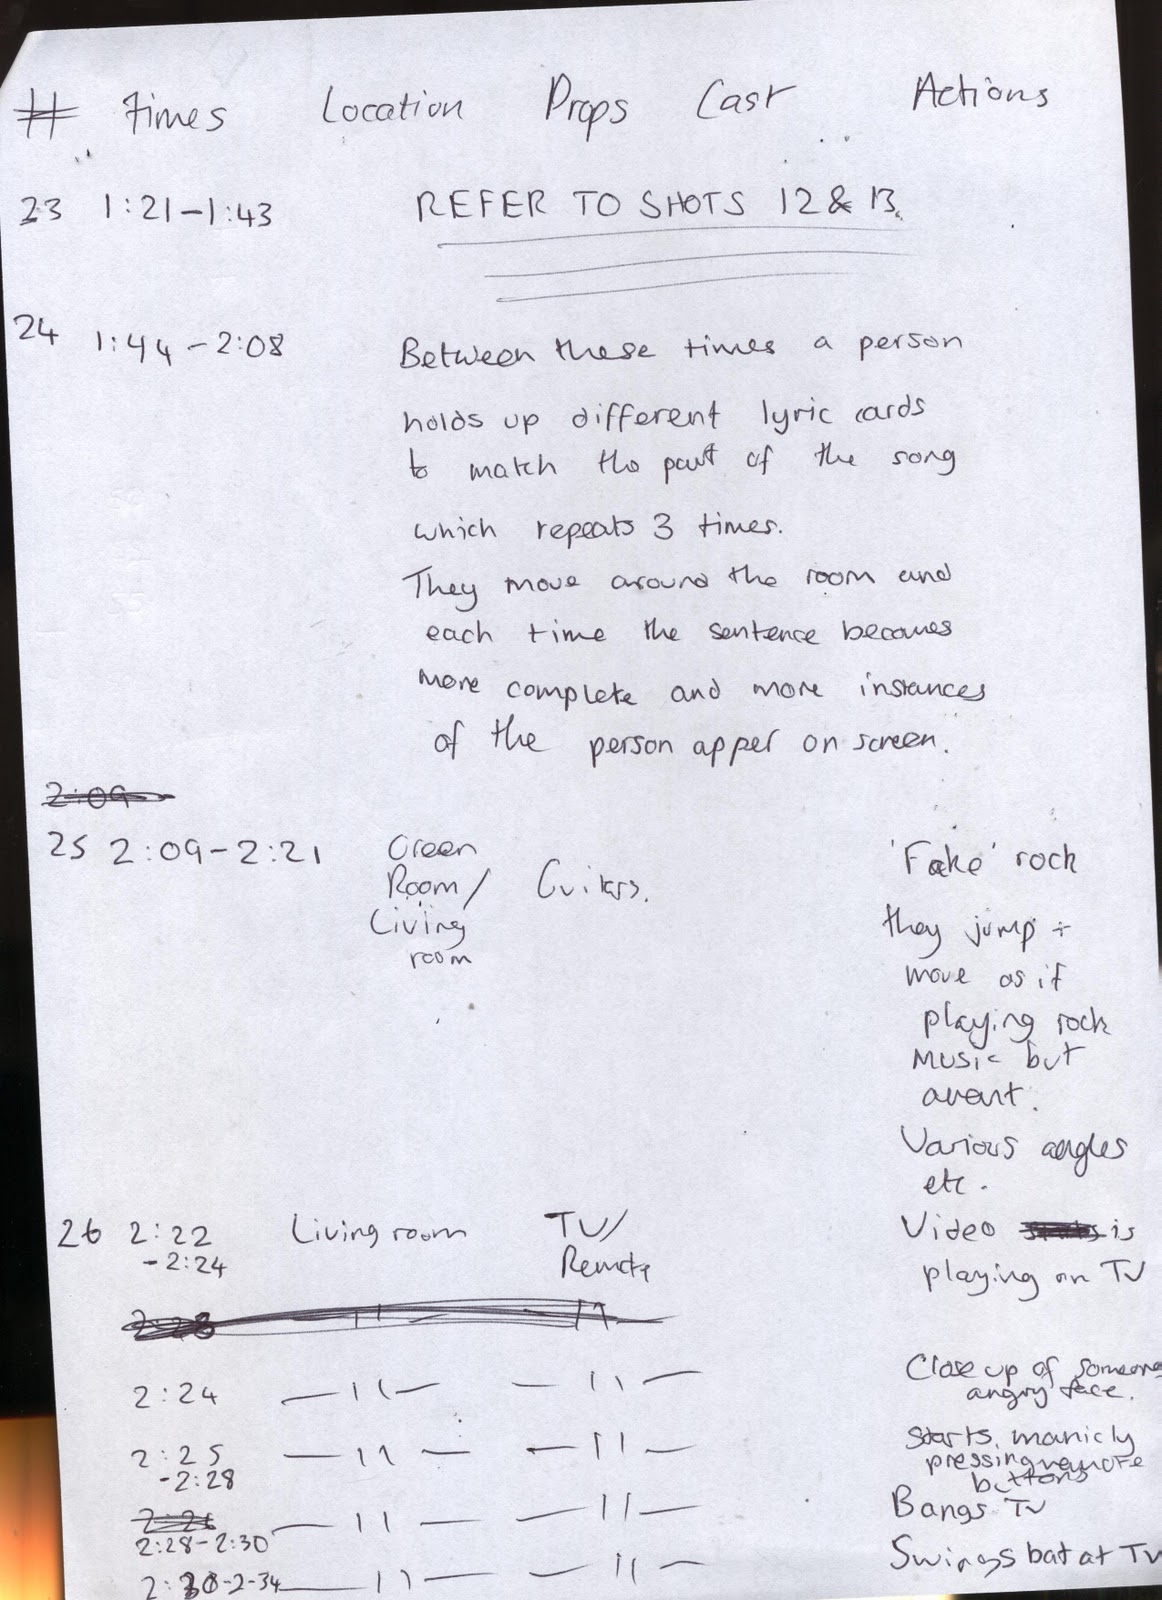 # Times Location Props Cast Actions
23 1:21-1:43 REFER TO SHOTS 12 & 13.
24 1:44-2:08 Between these times a person
holds up different lyric cards
to match the part of the song
which repeats 3 times.
They move around the room and
each time the sentence becomes
more complete and more instances
of the person apper on screen.
2:09
25 2:09-2:21 Green Room/ Living room Guitars. 'Fake' rock
they jump +
move as if
playing rock
music but
arent.
Various angles
etc.
26 2:22 -2:24 Living room TV/ Remote Video is
playing on TV
2:28 — 11 — — 11 —
2:24 — 11 — — 11 — Close up of someones
angry face.
2:25 -2:28 — 11 — — 11 — Starts, manicly
pressing remote
buttons
2:28-2:30 — 11 — — 11 — Bangs TV
2:30-2-34 — 11 — — 11 — Swings bat at TV